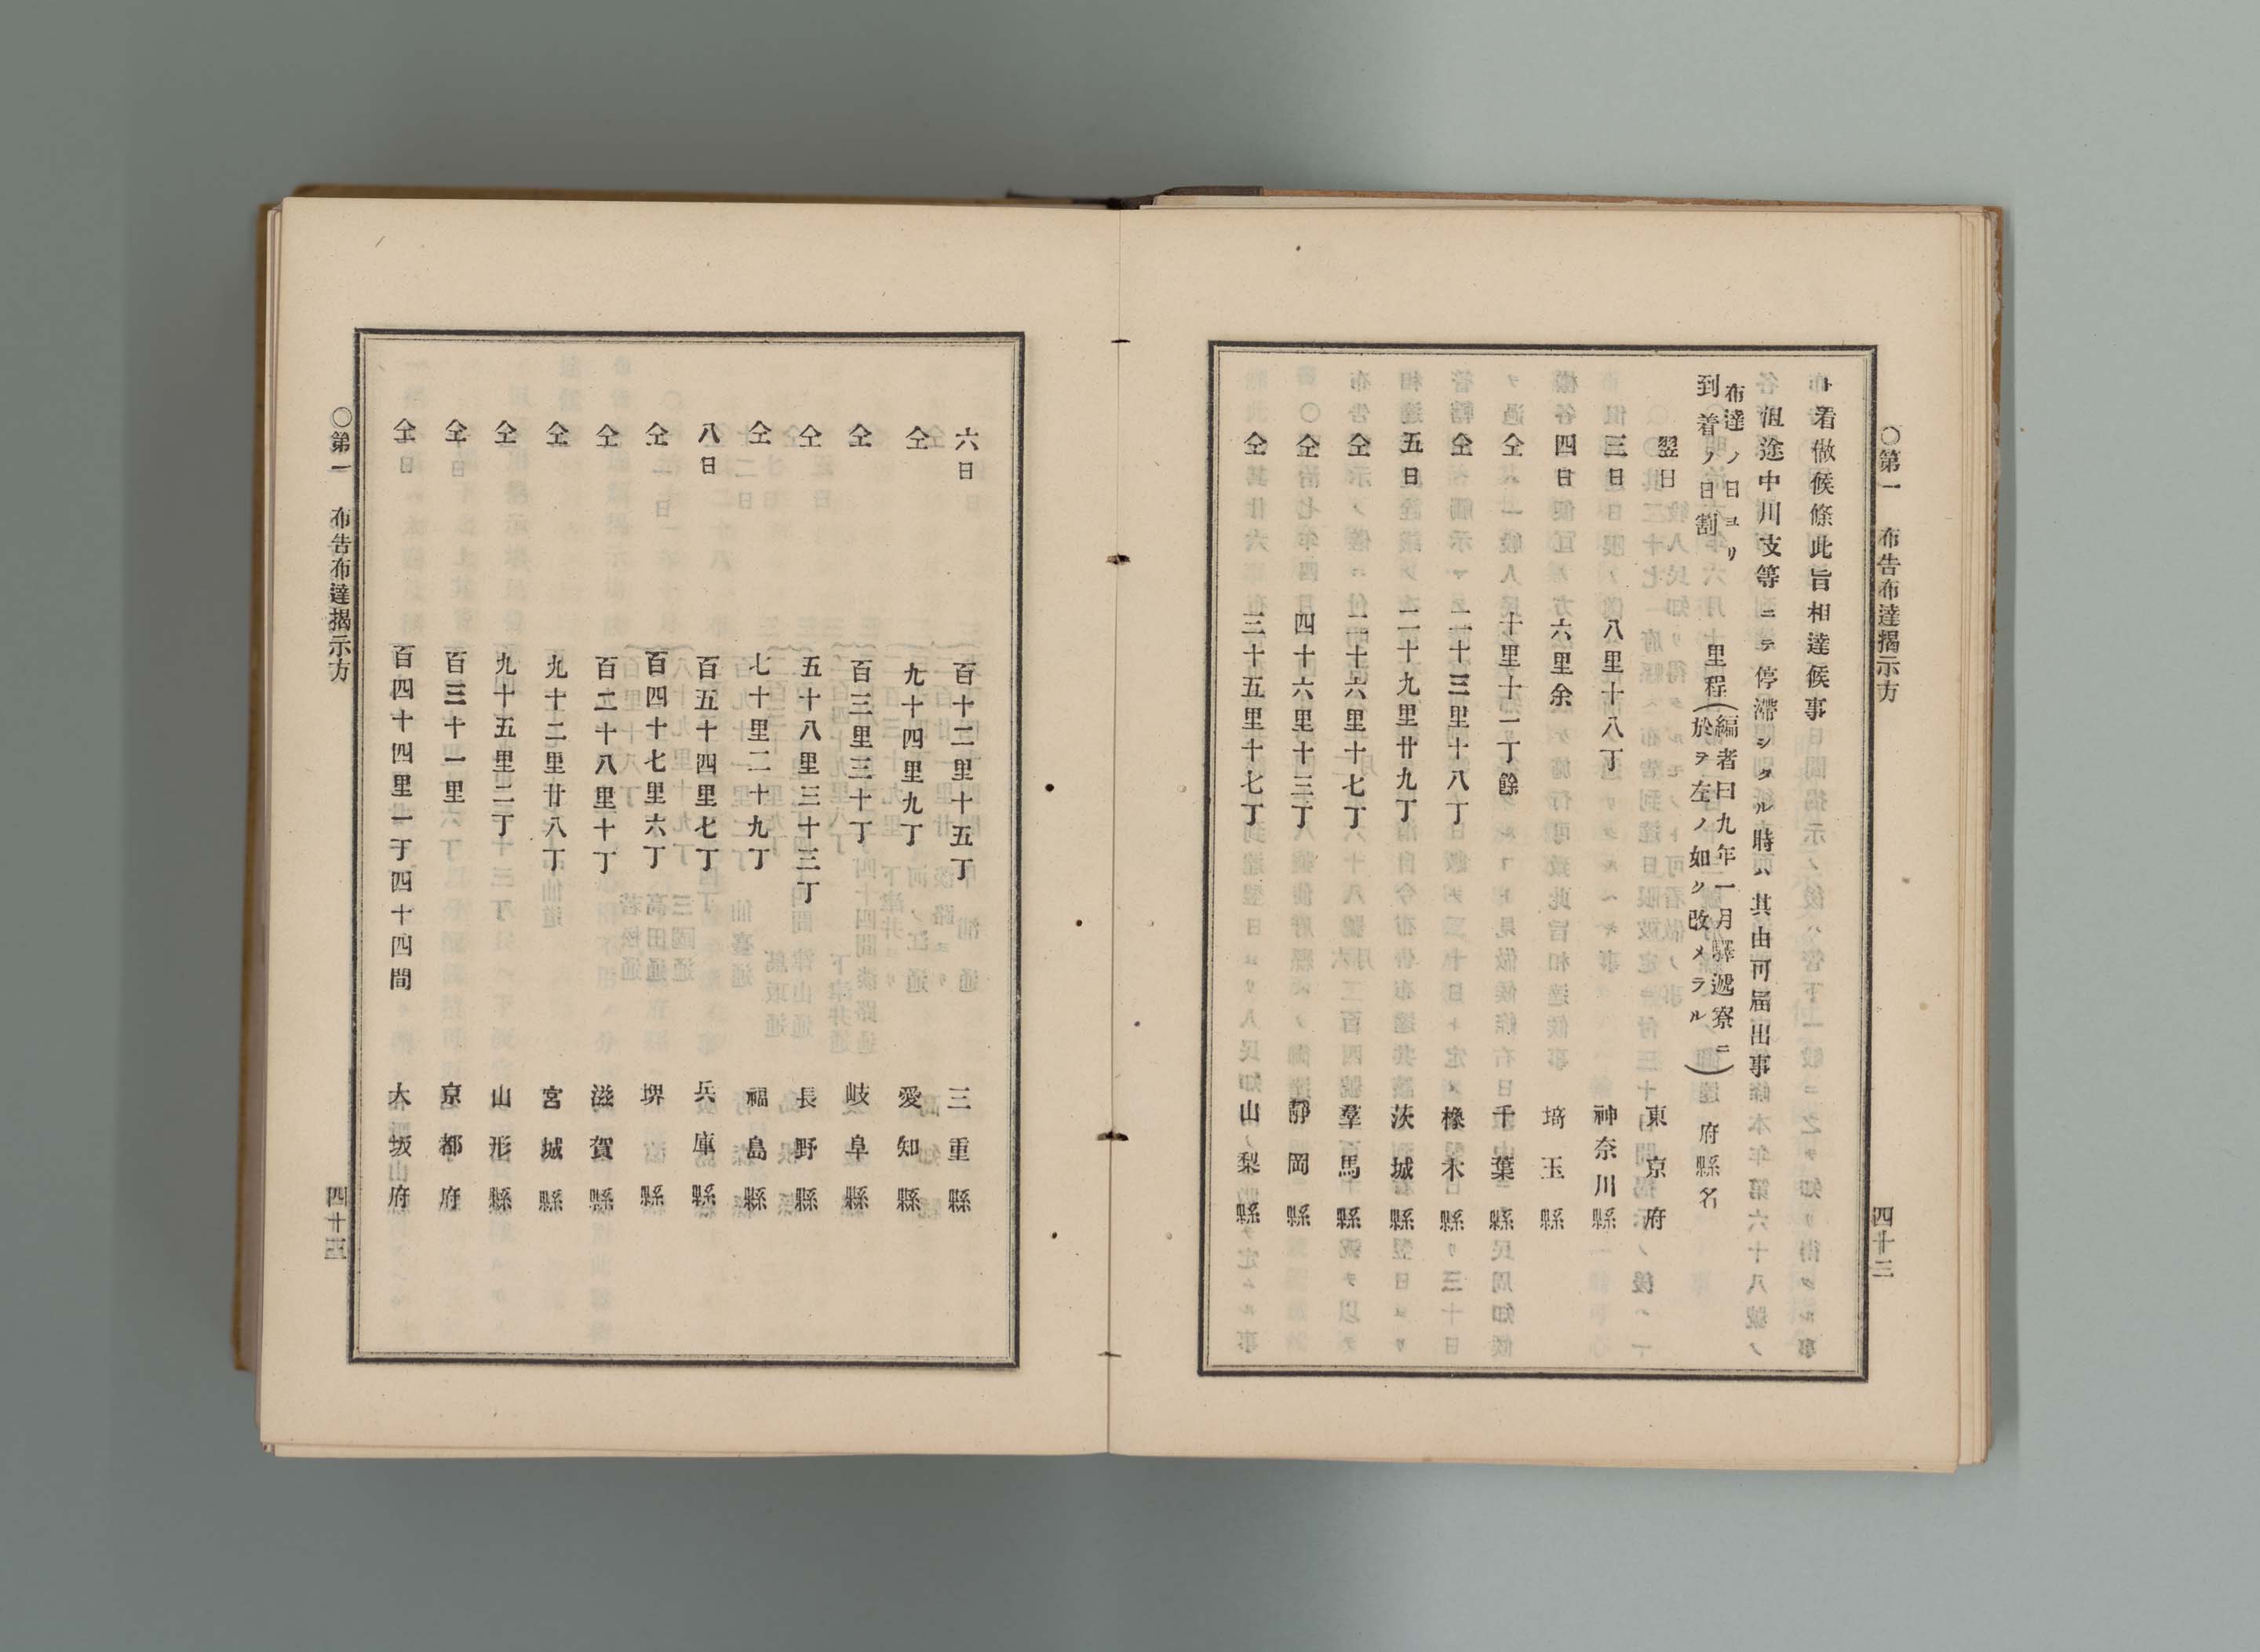 〇第一 布告布達揭示方 四十三
ト着做候條此旨相達候事
但途中川支等ニテ停滯シタル時ハ其由可届出事
布達ノ日ヨリ
到着ノ日割 里程(編者曰九年一月驛遞寮ニ
於ヲ左ノ如ク改メラル) 府縣名
翌日 東京府
三日 八里十八丁 神奈川縣
四日 六里余 埼玉縣
仝 十里十二丁餘 千葉縣
仝 二十三里十八丁 橡木縣
五日 二十九里廿九丁 茨城縣
仝 二十六里十七丁 羣馬縣
仝 四十六里十三丁 靜岡縣
仝 三十五里十七丁 山梨縣
六日 百十二里十五丁 三重縣
仝 九十四里九丁 愛知縣
仝 百三里三十丁 岐阜縣
仝 五十八里三十三丁 長野縣
仝 七十里二十九丁 福島縣
八日 百五十四里七丁 兵庫縣
仝 百四十七里六丁 堺縣
仝 百二十八里十丁 滋賀縣
仝 九十二里廿八丁 宮城縣
仝 九十五里二丁 山形縣
仝 百三十一里 京都府
仝 百四十四里一丁四十四間 大坂府
〇第一 布告布達揭示方 四十三